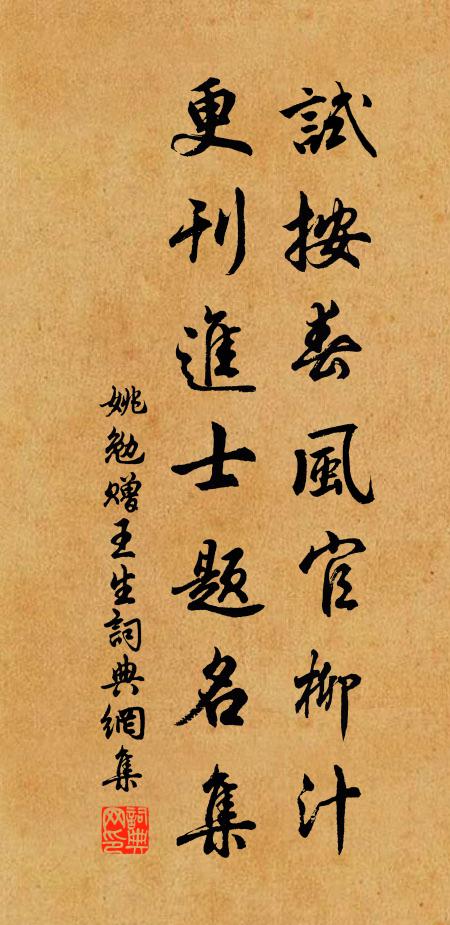 試按春風官柳汁
更刊進士題名集
姚勉贈王生詞典網集
詞典网印